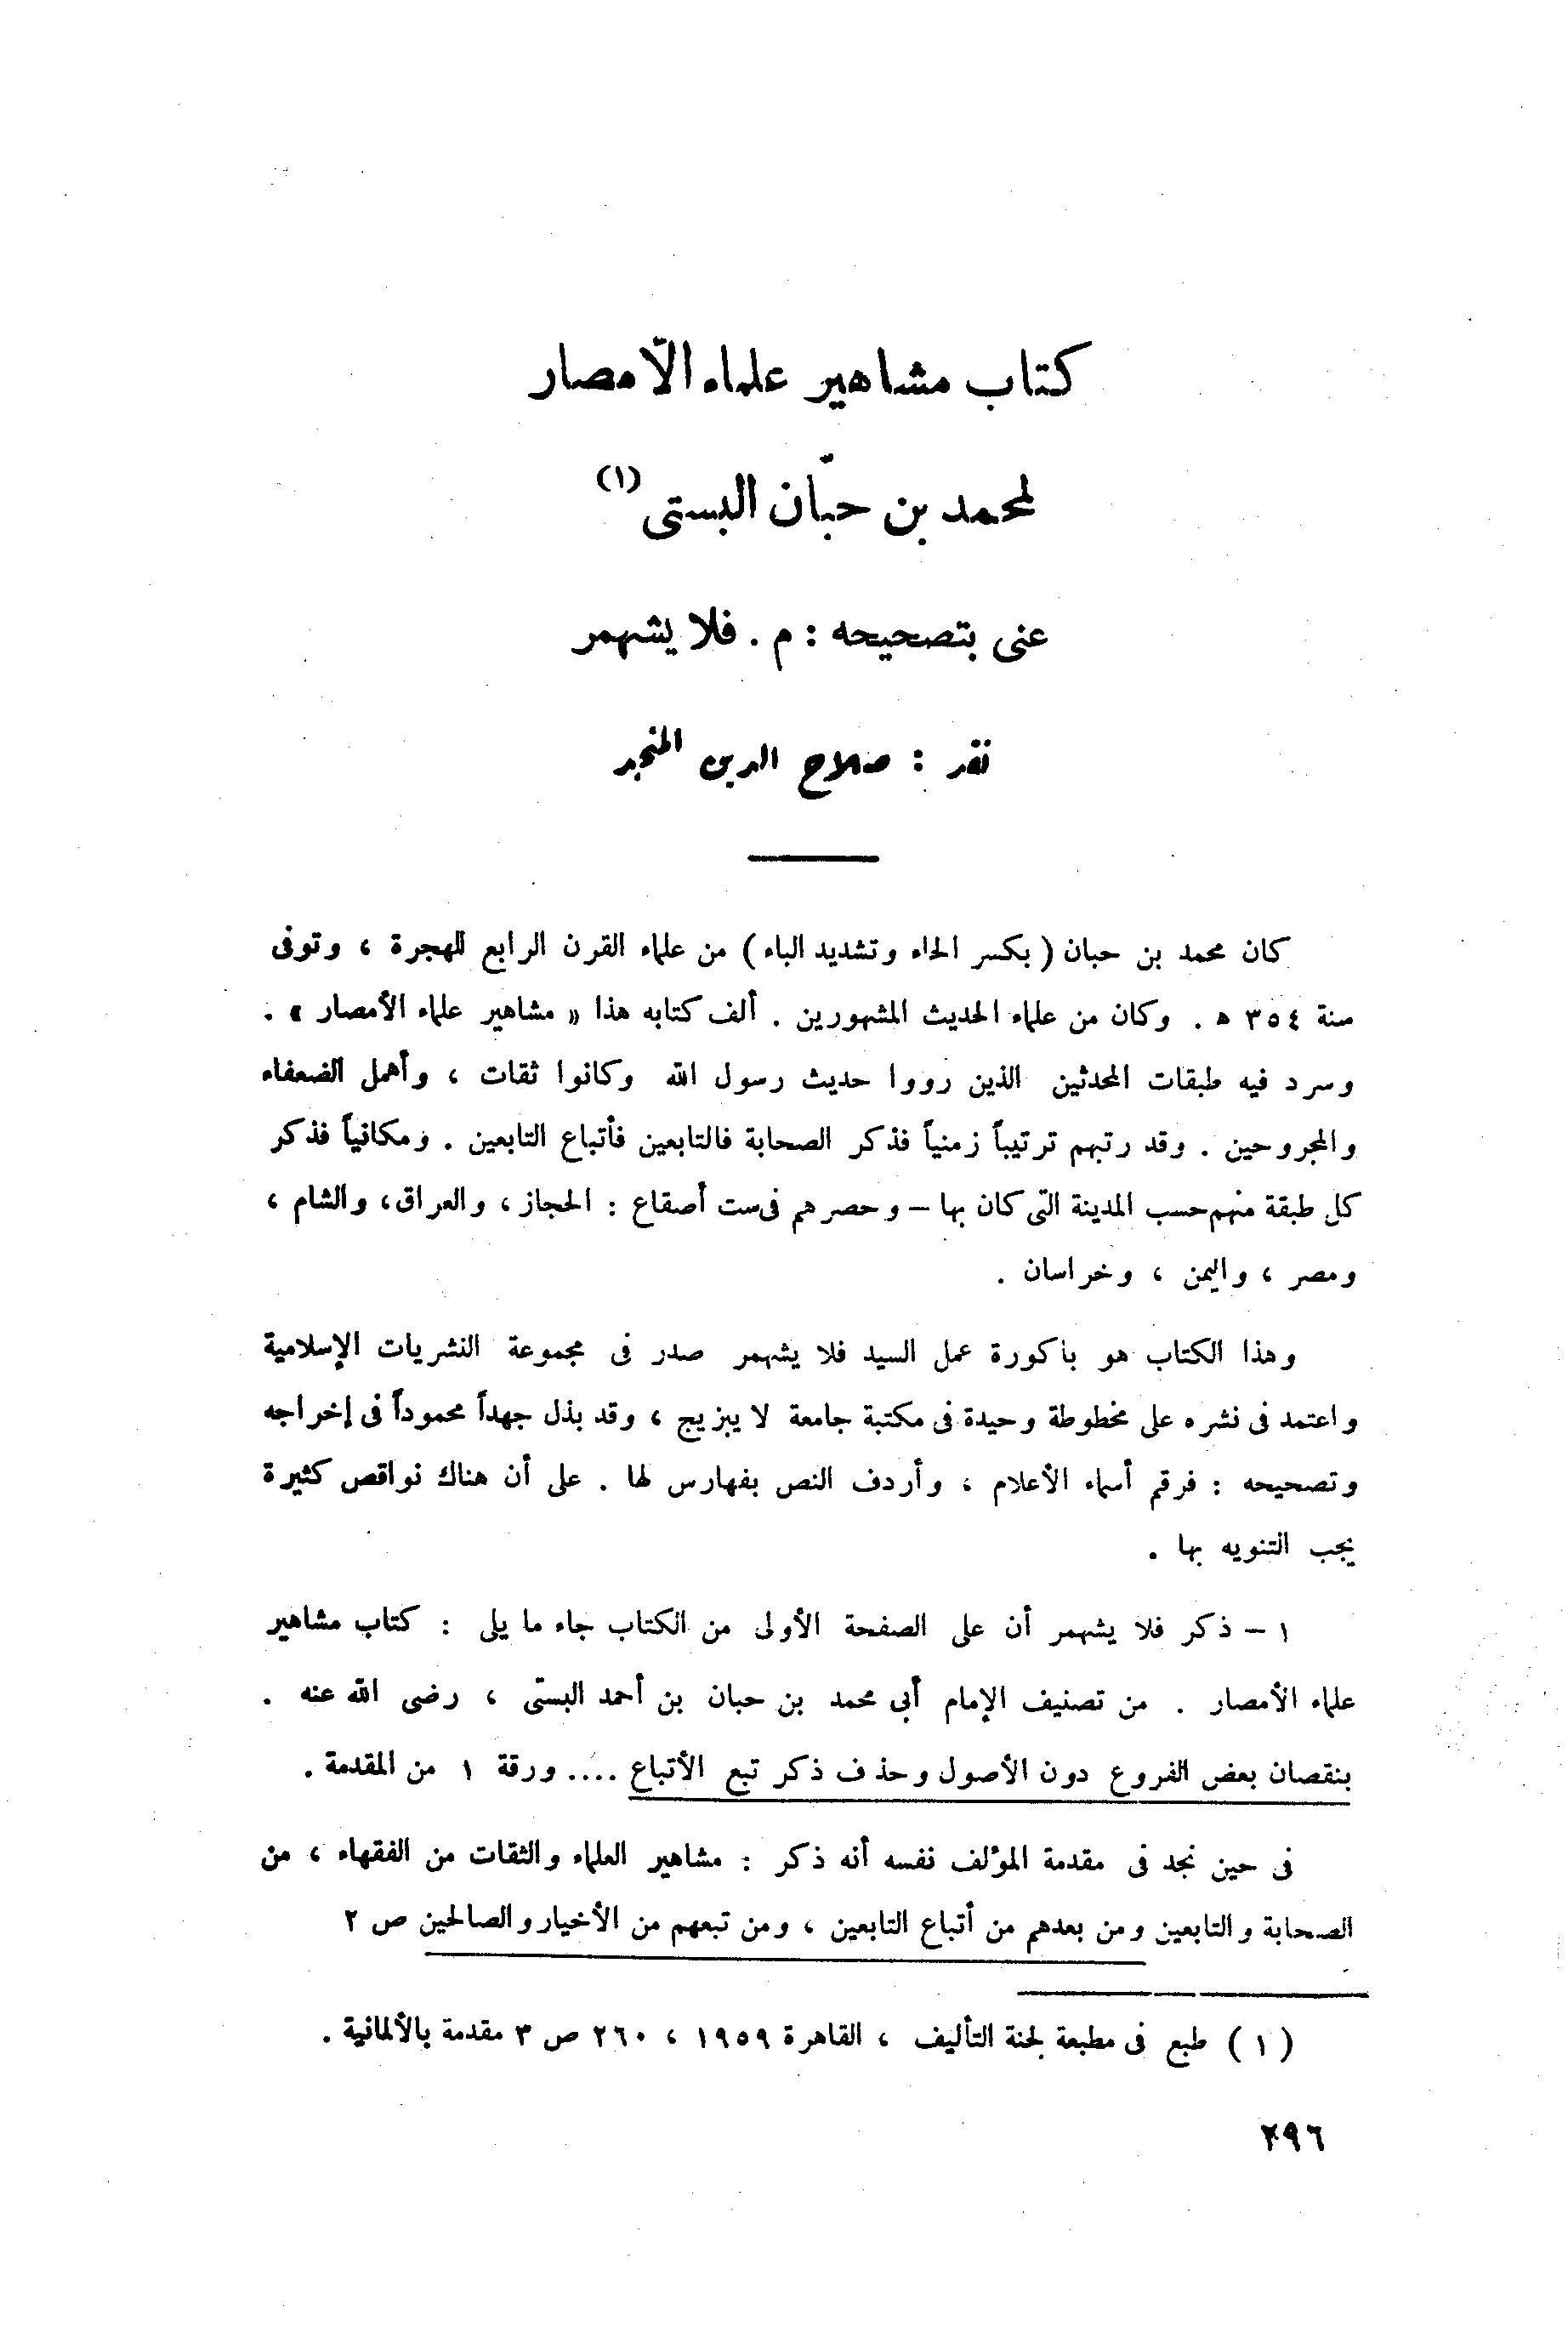 كتاب مشاهير علماء الأمصار
لمحمد بن حبّان البستى (١)
عنى بتصحيحه : م . فلايشهمر
نقد : صلاح الدين المنجد
كان محمد بن حبان ( بكسر الحاء وتشديد الباء ) من علماء القرن الرابع للهجرة ، وتوفى
سنة ٣٥٤ ه . وكان من علماء الحديث المشهورين . ألف كتابه هذا « مشاهير علماء الأمصار » .
وسرد فيه طبقات المحدثين الذين رووا حديث رسول الله وكانوا ثقات ، وأهمل الضعفاء
والمجروحين . وقد رتبهم ترتيباً زمنياً فذكر الصحابة فالتابعين فأتباع التابعين . ومكانياً فذكر
كل طبقة منهم حسب المدينة التى كان بها – وحصرهم فى ست أصقاع : الحجاز ، والعراق ، والشام ،
ومصر ، واليمن ، وخراسان .
وهذا الكتاب هو باكورة عمل السيد فلايشهمر صدر فى مجموعة النشريات الإسلامية
واعتمد فى نشره على مخطوطة وحيدة فى مكتبة جامعة لايبزيج ، وقد بذل جهداً محموداً فى إخراجه
وتصحيحه : فرقم أسماء الأعلام ، وأردف النص بفهارس لها . على أن هناك نواقص كثيرة
يجب التنويه بها .
١ – ذكر فلايشهمر أن على الصفحة الأولى من الكتاب جاء ما يلى : كتاب مشاهير
علماء الأمصار . من تصنيف الإمام أبى محمد بن حبان بن أحمد البستى ، رضى الله عنه .
بنقصان بعض الفروع دون الأصول وحذف ذكر تبع الأتباع .... ورقة ١ من المقدمة .
فى حين نجد فى مقدمة المؤلف نفسه أنه ذكر : مشاهير العلماء والثقات من الفقهاء ، من
الصحابة والتابعين ومن بعدهم من أتباع التابعين ، ومن تبعهم من الأخيار والصالحين ص ٢
( ١ ) طبع فى مطبعة لجنة التأليف ، القاهرة ١٩٥٩ ، ٢٦٠ ص ٣ مقدمة بالألمانية .
٢٩٦